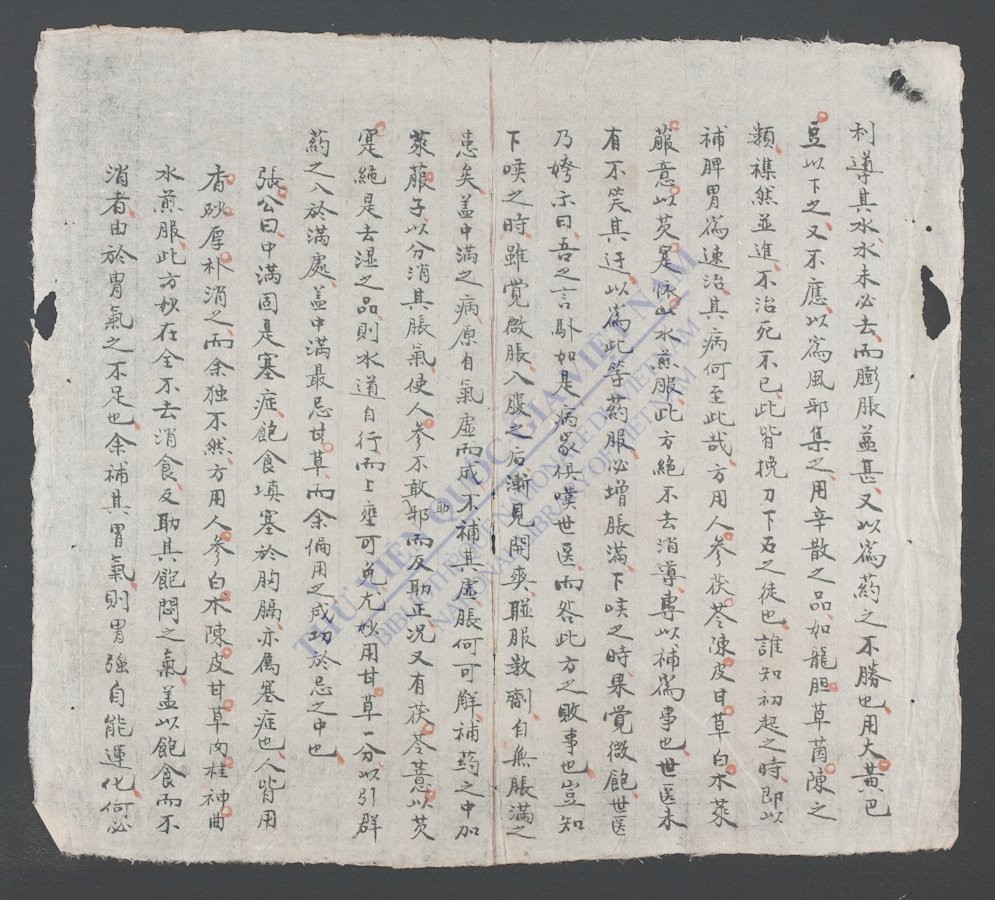 利導其水水未必去而膨脹益甚又以為葯之不勝也用大黃巴
豆以下之又不應以為風邪集之用辛散之品如龍胆草茵陳之
類樵然並進不治死不已此皆挽刀下石之徒也誰知初起之時即以
補脾胃為速治其病何至此哉方用人參茯苓陳皮甘草白朮萊
菔薏以芡寔怀山水煎服此方絕不去消導專以補為事也世医未
有不笑其迂以為此等葯服必增脹滿下咲之時果覺微飽世医
乃姱示曰吾之言驗如是病家俱嘆世医而咎此方之敗事也豈知
下咲之時雖覺微脹入腹之后漸見開爽聮服数劑自無脹滿之
患矣盖中滿之病原自氣虛而成不補其虛脹何可解補葯之中加
萊菔子以分消其脹氣使人參不敢助邪而反助正况又有茯苓薏以芡
寔純是去湿之品則水道自行而上壅可免尤妙用甘草一分以引群
葯之入於滿處盖中滿最忌甘草而余偏用之成功於忌之中也
張公曰中滿固是塞症飽食填塞於胸膈亦属塞症也人皆用
香砂厚朴消之而余独不然方用人參白朮陳皮甘草肉桂神曲
水煎服此方妙在全不去消食反助其飽悶之氣盖以飽食而不
消者由於胃氣之不足也余補其胃氣則胃强自能運化何必
THƯ VIỆN QUỐC GIA VIỆT NAM
BIBLIOTHÈQUE NATIONALE DU VIETNAM
NATIONAL LIBRARY OF VIETNAM